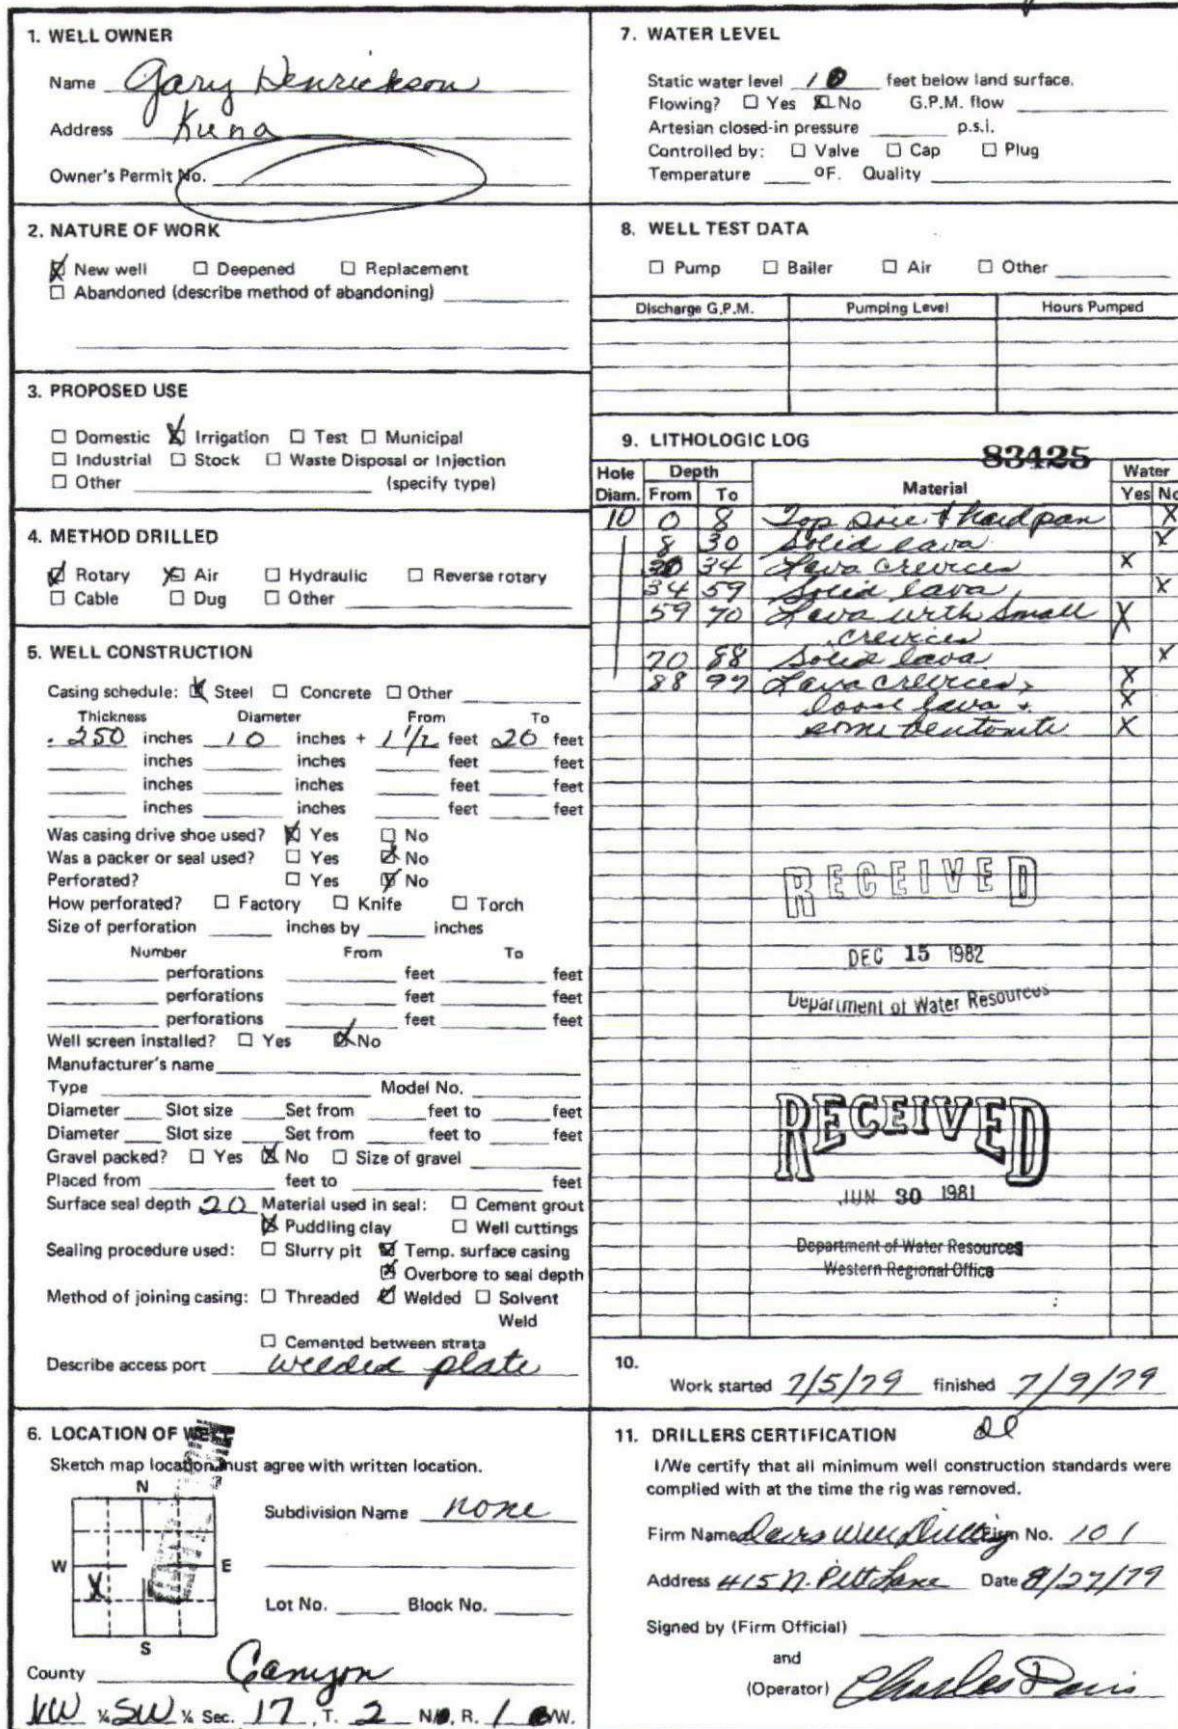 1. WELL OWNER
Name Gary Henrickson
Address Kuna
Owner's Permit No.
2. NATURE OF WORK
New well Deepened Replacement
Abandoned (describe method of abandoning)
3. PROPOSED USE
Domestic Irrigation Test Municipal
Industrial Stock Waste Disposal or Injection
Other (specify type)
4. METHOD DRILLED
Rotary Air Hydraulic Reverse rotary
Cable Dug Other
5. WELL CONSTRUCTION
Casing schedule: Steel Concrete Other
Thickness Diameter From To
.250 inches 10 inches + 1 1/2 feet 20 feet
inches inches feet feet
inches inches feet feet
inches inches feet feet
Was casing drive shoe used? Yes No
Was a packer or seal used? Yes No
Perforated? Yes No
How perforated? Factory Knife Torch
Size of perforation inches by inches
Number From To
perforations feet feet
perforations feet feet
perforations feet feet
Well screen installed? Yes No
Manufacturer's name
Type Model No.
Diameter Slot size Set from feet to feet
Diameter Slot size Set from feet to feet
Gravel packed? Yes No Size of gravel
Placed from feet to feet
Surface seal depth 20 Material used in seal: Cement grout
Puddling clay Well cuttings
Sealing procedure used: Slurry pit Temp. surface casing
Overbore to seal depth
Method of joining casing: Threaded Welded Solvent
Weld
Cemented between strata
Describe access port welded plate
6. LOCATION OF WELL
Sketch map location must agree with written location.
N
W E
X
S
Subdivision Name none
Lot No. Block No.
County Canyon
NW ¼ SW ¼ Sec. 17, T. 2 N/S, R. 1 E/W.
7. WATER LEVEL
Static water level 10 feet below land surface.
Flowing? Yes No G.P.M. flow
Artesian closed-in pressure p.s.i.
Controlled by: Valve Cap Plug
Temperature ºF. Quality
8. WELL TEST DATA
Pump Bailer Air Other
Discharge G.P.M. Pumping Level Hours Pumped
9. LITHOLOGIC LOG 83425
Hole Depth Water
Diam. From To Material Yes No
10 0 8 Top soil & hardpan X
8 30 Solid lava X
30 34 Lava crevices X
34 59 Solid lava X
59 70 Lava with small X
crevices
70 88 Solid lava X
88 97 Lava crevices, X
loose lava & X
some bentonite X
RECEIVED
DEC 15 1982
Department of Water Resources
RECEIVED
JUN 30 1981
Department of Water Resources
Western Regional Office
10.
Work started 7/5/79 finished 7/9/79
11. DRILLERS CERTIFICATION
I/We certify that all minimum well construction standards were
complied with at the time the rig was removed.
Firm Name Davis Well Drilling Firm No. 101
Address 415 N. Pitt Lane Date 8/27/79
Signed by (Firm Official)
and
(Operator) Charles Davis